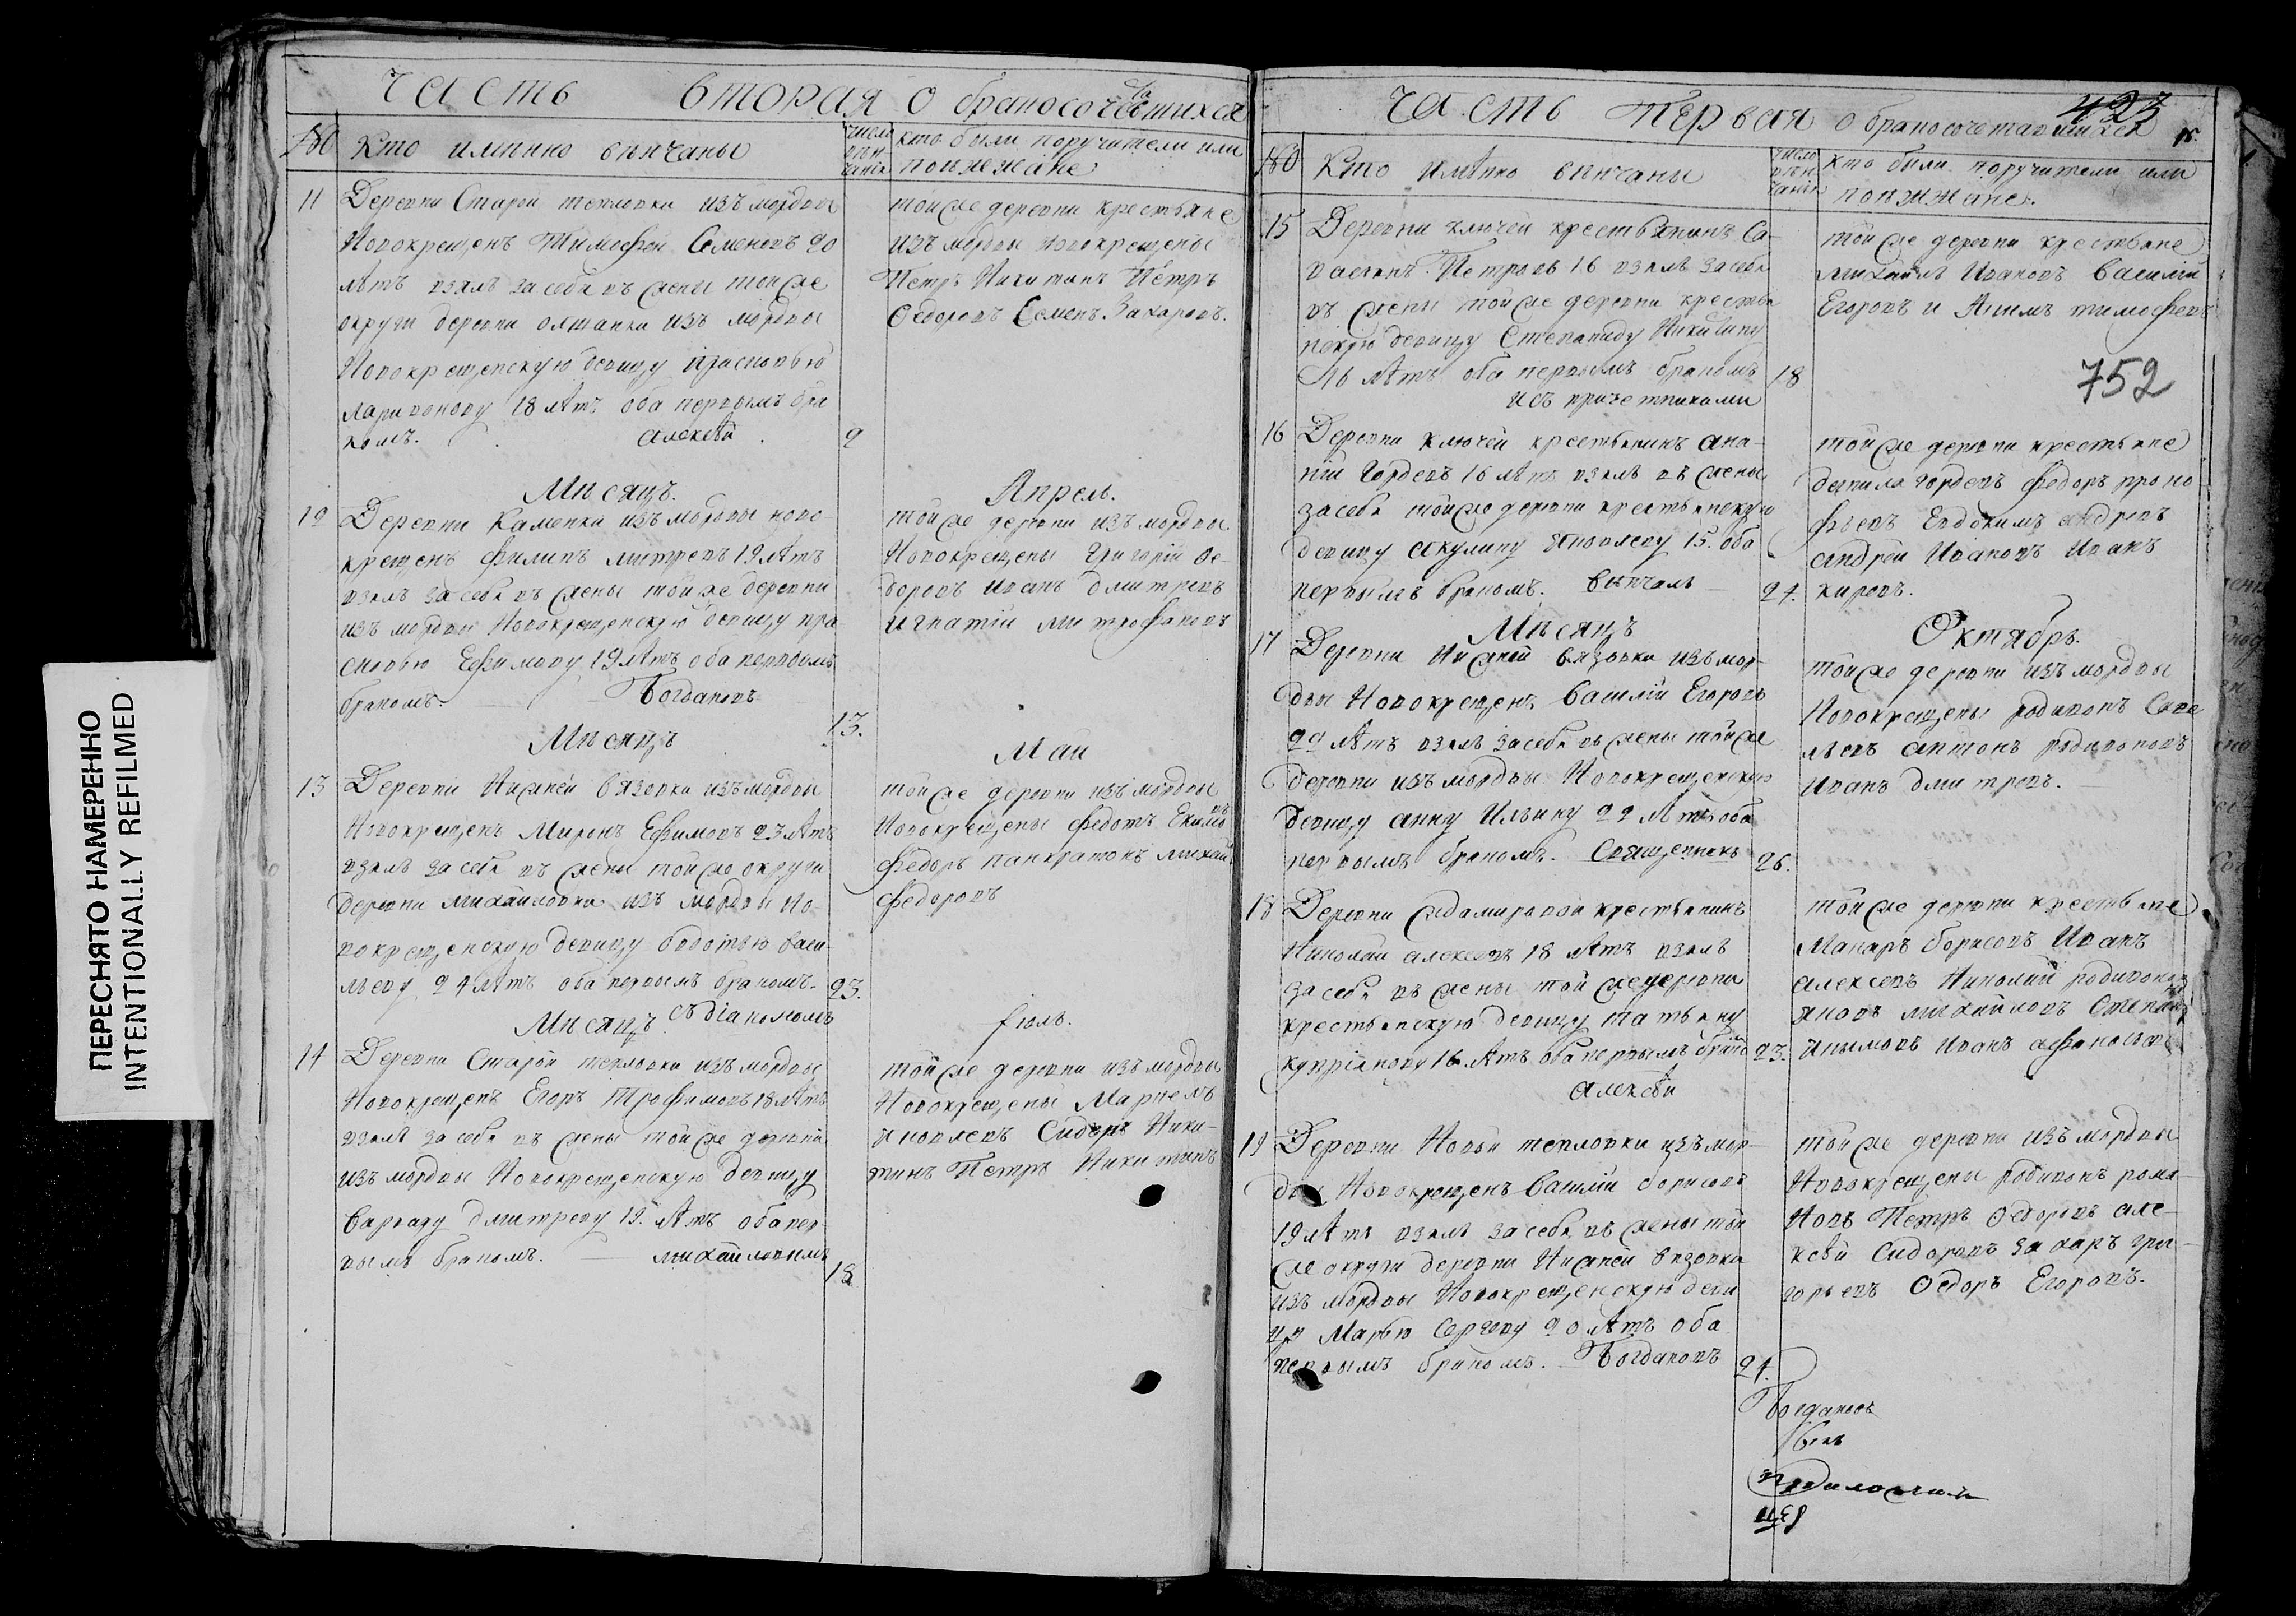 ПЕРЕСНЯТО НАМЕРЕННО
INTENTIONALLY REFILMED
Часть вторая о бракосочетавшихся
№ Кто имянно венчаны
число венчания
кто были поручители или
поезжане
11 Деревни Старой тепловки изъ мордвы
Новокрещенъ Тимофей Семеновъ 20
летъ взялъ за себя въ жены той же
округи деревни олшанки изъ мордвы
Новокрещенскую девицу Прасковью
ларионову 18 летъ оба первымъ бра
комъ. алексей 9
той же деревни крестьяне
изъ мордвы новокрещены
Петръ Никитинъ Петръ
Федоровъ Семенъ Захаровъ.
Месяцъ. Апрель.
12 Деревни Каменки изъ мордвы ново
крещенъ филипъ митревъ 19 летъ
взялъ за себя въ жены той же деревни
изъ мордвы Новокрещенскую девицу пра
сковью Ефимову 19 летъ оба первымъ
бракомъ. Богдановъ 13.
той же деревни изъ мордвы
Новокрещены Григорий Фе-
доровъ иванъ дмитревъ
игнатий митрофановъ
Месяцъ Май
13 Деревни Нижней вязовки изъ мордвы
Новокрещенъ Миронъ Ефимовъ 23 летъ
взялъ за себя въ жены той же округи
деревни михайловки изъ мордвы Но-
вокрещенскую девицу авдотью васи-
льеву 24 летъ оба первымъ бракомъ. 23.
съ діакономъ
той же деревни изъ мордвы
Новокрещены федотъ Екимовъ
федоръ панкратовъ михайла
федоровъ
Месяцъ. Іюль.
14 Деревни Старой тепловки изъ мордвы
Новокрещенъ Егоръ Трофимовъ 18 летъ
взялъ за себя въ жены той же деревни
изъ мордвы Новокрещенскую девицу
Варвару дмитреву 19. летъ оба пер-
вымъ бракомъ. михайловымъ 18
той же деревни изъ мордвы
Новокрещены
Яковлевъ Сидоръ Ники-
тинъ Петръ Никитинъ
Часть первая о бракосочетавшихся
423
№ Кто имянно венчаны
число венчания
кто были поручители или
поезжане.
15 Деревни ключей крестьянинъ Са-
Петровъ 16 взялъ за себя
въ жены той же деревни крестья
нскую девицу Степаниду Никитину
16 летъ оба первымъ бракомъ 18
и съ причетниками
той же деревни крестьяне
михайла Ивановъ василий
Егоровъ и Акимъ тимофеевъ
752
16 Деревни ключей крестьянинъ ана-
ний Гордеевъ 16 летъ взялъ въ жены
за себя той же деревни крестьянскую
девицу акулину яковлеву 15. оба
первымъ бракомъ. венчалъ 24.
той же деревни крестьяне
данила гордеевъ федоръ проко
фьевъ Евдокимъ андреевъ
андрей Ивановъ Иванъ
кировъ.
Месяцъ Октябрь.
17 Деревни Нижней вязовки изъ мор-
двы Новокрещенъ василий Егоровъ
22 летъ взялъ за себя въ жены той же
деревни изъ мордвы Новокрещенскую
девицу анну Ильину 22 летъ оба
первымъ бракомъ. Священникъ 26.
той же деревни изъ мордвы
Новокрещены родивонъ Саве
льевъ антонъ родивоновъ
Иванъ дмитревъ.
18 Деревни крестьянинъ
Николай алексеевъ 18 летъ взялъ
за себя въ жены той же деревни
крестьянскую девицу татьяну
куприянову 16 летъ оба первымъ бракомъ 23.
алексей
той же деревни крестьяне
Макаръ борисовъ Иванъ
алексеевъ Николай родивоновъ
яковъ михайловъ Степанъ
Иванъ афанасьевъ
19 Деревни Новой тепловки изъ мор-
двы Новокрещенъ василий борисовъ
19 летъ взялъ за себя въ жены той
же округи деревни Нижней вязовки
изъ мордвы Новокрещенскую деви
цу Марью Сергееву 20 летъ оба
первымъ бракомъ. Богдановъ 24.
той же деревни изъ мордвы
Новокрещены родивонъ рома-
новъ Петръ Федоровъ але-
ксей Сидоровъ захаръ гри-
горьевъ Федоръ Егоровъ.
Богдановъ